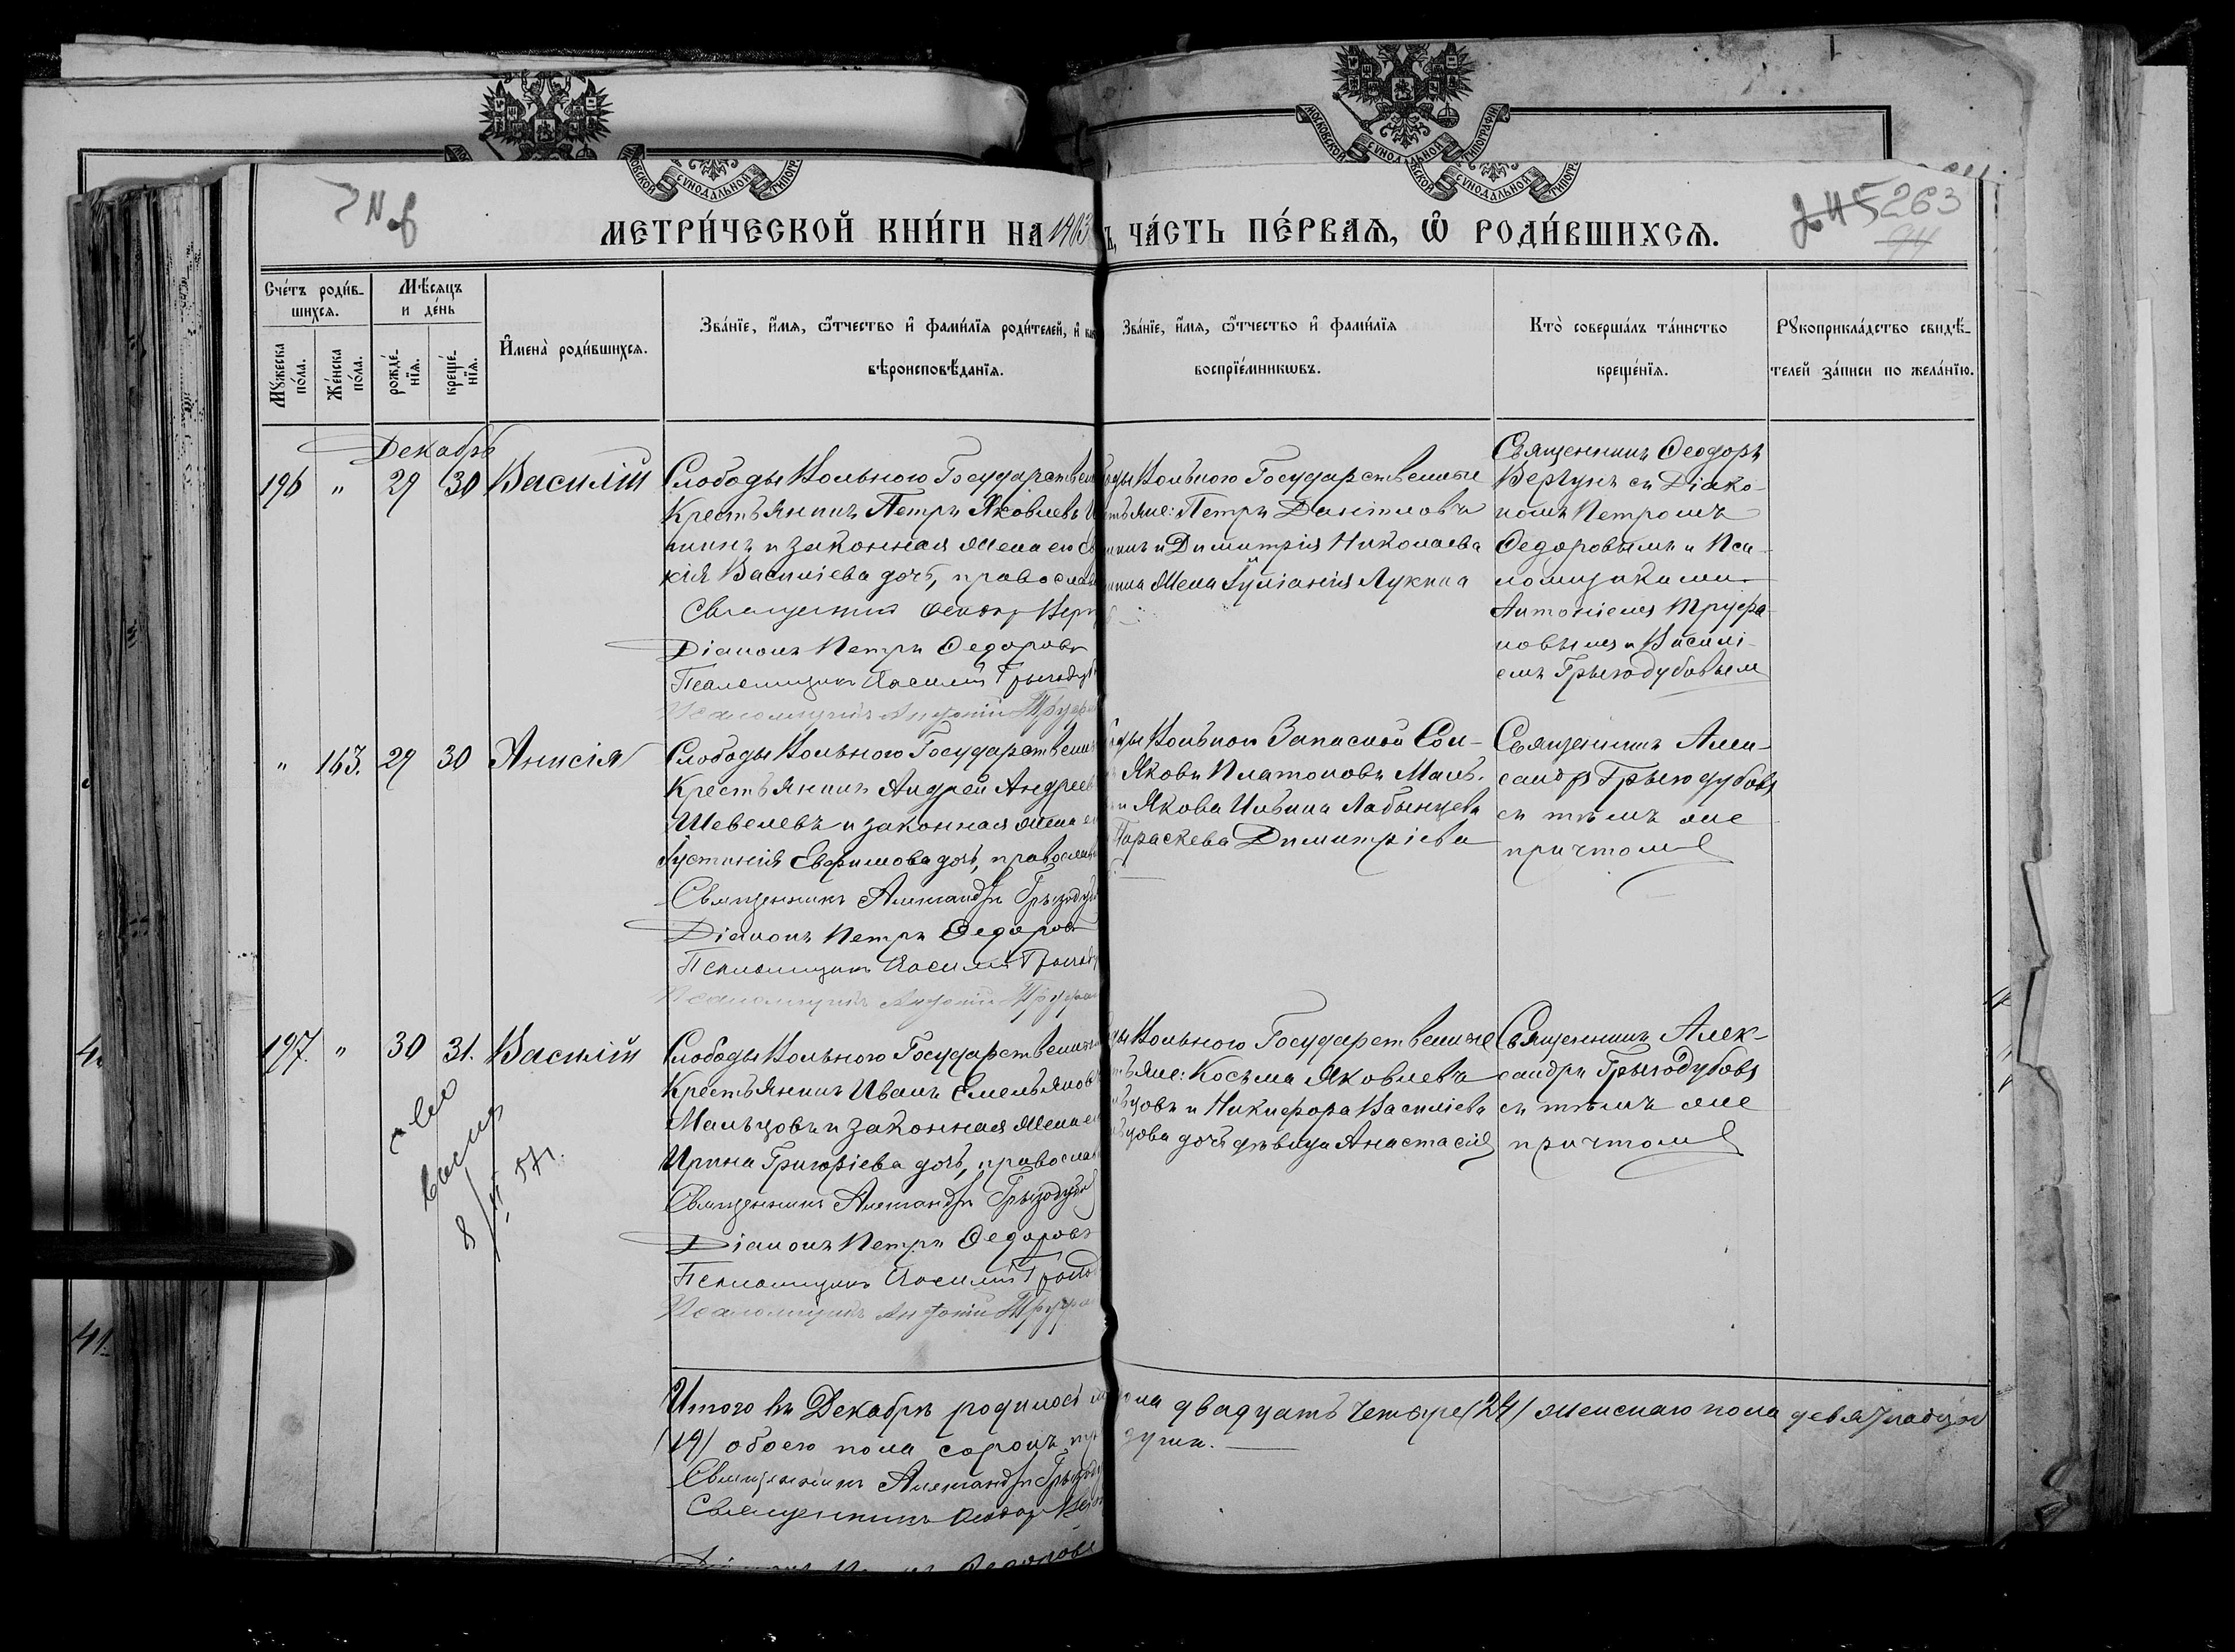 МОСКОВСКОЙ СУНОДАЛЬНОЙ ТИПОГРАФІИ
МОСКОВСКОЙ СУНОДАЛЬНОЙ ТИПОГР
СУНОДАЛЬНОЙ ТИПОГР
263
МЕТРИ́ЧЕСКОЙ КНИ́ГИ НА 1903
Ъ, ЧА́СТЬ ПЕ́РВАѦ, Ѿ РОДИ́ВШИХСѦ.
Сче́тъ роди́в-
шихсѧ.
Мѣ́сяцъ
и де́нь
Мꙋ́жеска по́ла.
Же́нска по́ла.
рожде́-
нїѧ.
креще́-
нїѧ.
И҆мена̀ роди́вшихсѧ.
Зва́нїе, и҆́мѧ, ѻ҆́тчество и҆ фами́лїѧ роди́телей, и҆
вѣроисповѣ́данїѧ.
Зва́нїе, и҆́мѧ, ѻ҆́тчество и҆ фами́лїѧ
воспрїе́мникѡвъ.
Кто̀ соверша́лъ та́инство
креще́нїѧ.
Рꙋкоприкла́дство свидѣ́-
телей за́писи по жела́нїю.
Декабрь
196 " 29 30 Василій
Слободы Вольнаго Государствен
Крестьянинъ Петръ Яковлевъ
и законная жена его
кія Василіева дочь, православ
Священникъ Ѳеодоръ Верг
Діаконъ Петръ Ѳедоровъ
Псаломщикъ Василій Грызодуб
Псаломщикъ Антоній Труфан
Вольнаго Государственные
Петръ Даніиловъ
и Димитрія Николаева
жена Іуліанія Лукина
Священникъ Ѳеодоръ
Вергунъ съ Діако-
номъ Петромъ
Ѳедоровымъ и Пса-
ломщиками
Антоніемъ Труфа-
новымъ и Василі-
емъ Грызодубовым
" 163. 29 30 Анисія
Слободы Вольнаго Государствен
Крестьянинъ Андрей Андреев
Шевелевъ и законная жена ег
Іустинія Евфимова дочь, православ
Священникъ Александръ Грызодуб
Діаконъ Петръ Ѳедоровъ
Псаломщикъ Василій Грызоду
Псаломщикъ Антоній Труфан
Вольнаго Запасной Сол-
Яковъ Платоновъ Маль-
и Якова Ильина Лабынцева
Параскева Димитріева
Священникъ Алек-
сандръ Грызодубовъ
съ тѣмъ же
причтомъ
197. " 30 31. Василій
Слободы Вольнаго Государствен
Крестьянинъ Иванъ Емельянов
Мальцовъ и законная жена ег
Ирина Григоріева дочь, православ
Священникъ Александръ Грызодуб
Діаконъ Петръ Ѳедоровъ
Псаломщикъ Василій Грызод
Псаломщикъ Антоній Труфан
Вольнаго Государственные
Косьма Яковлевъ
и Никифора Василіева
дочь дѣвица Анастасія
Священникъ Алек-
сандръ Грызодубовъ
съ тѣмъ же
причтомъ
Итого въ Декабрѣ родилось
двадцать четыре (24) женскаго пола девятнадцат
(19) обоего пола сорокъ
души.
Священникъ Александръ Грызоду
Священникъ Ѳеодоръ Верг
41.